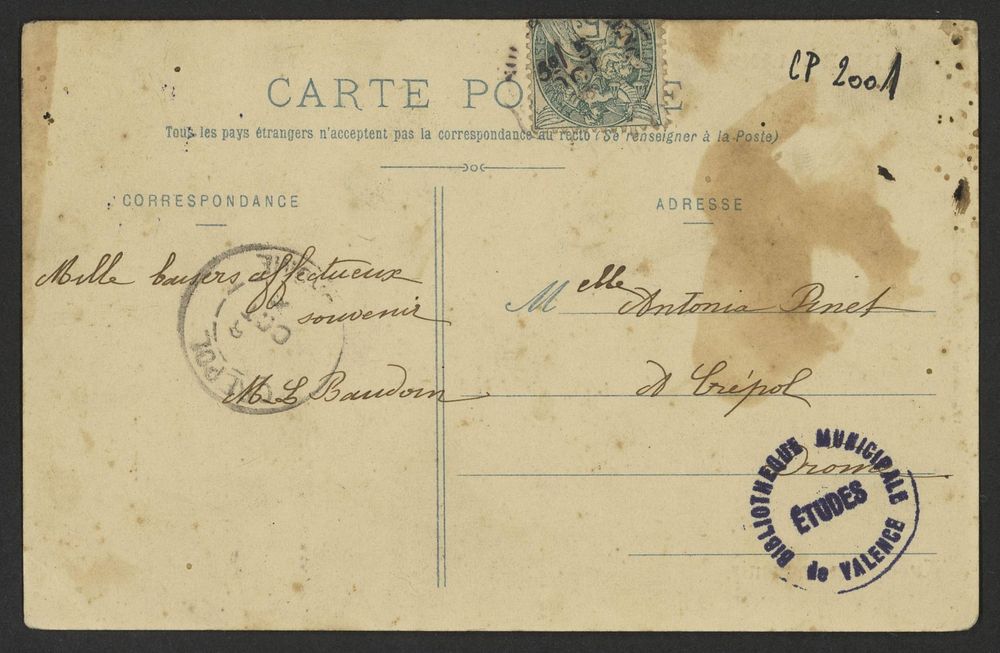 CP 2001
CARTE PO E
Tous les pays étrangers n'acceptent pas la correspondance au recto (Se renseigner à la Poste)
CORRESPONDANCE
Mille baisers affectueux
souvenir
M. L Baudoin
ADRESSE
Melle Antonia Pinet
A Crépol
Drome
BIBLIOTHEQUE MUNICIPALE
ÉTUDES
de VALENCE